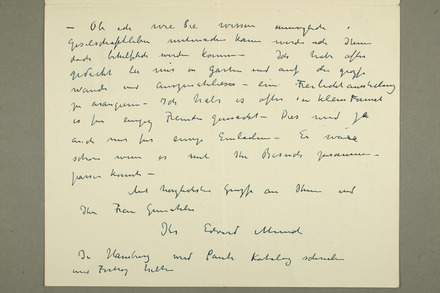 — Ob ich wie Sie wissen unmöglich
Gesellschaftleben mitmachen kann werde ich Ihnen
doch behülflich werden können — Ich habe öfter
gedacht bei mir in Garten und auf der grosse
Wände und Ausgeschlossen — ein Freilichtausstellung
zu arangieren — Ich habe es öfter in kleine Format
es für einige Fremden gemacht — Dies wird ja
auch nur für einige Einladen — Es wäre
schön wenn es mit Ihr Besuch zusammen-
passen konnte —
Mit herzlichsten Grüsse an Ihnen und
Ihr Frau Gemahlin
Ihr Edvard Munch
In Hamburg wird Pauli Katalog schreiben
und Vortrag halten